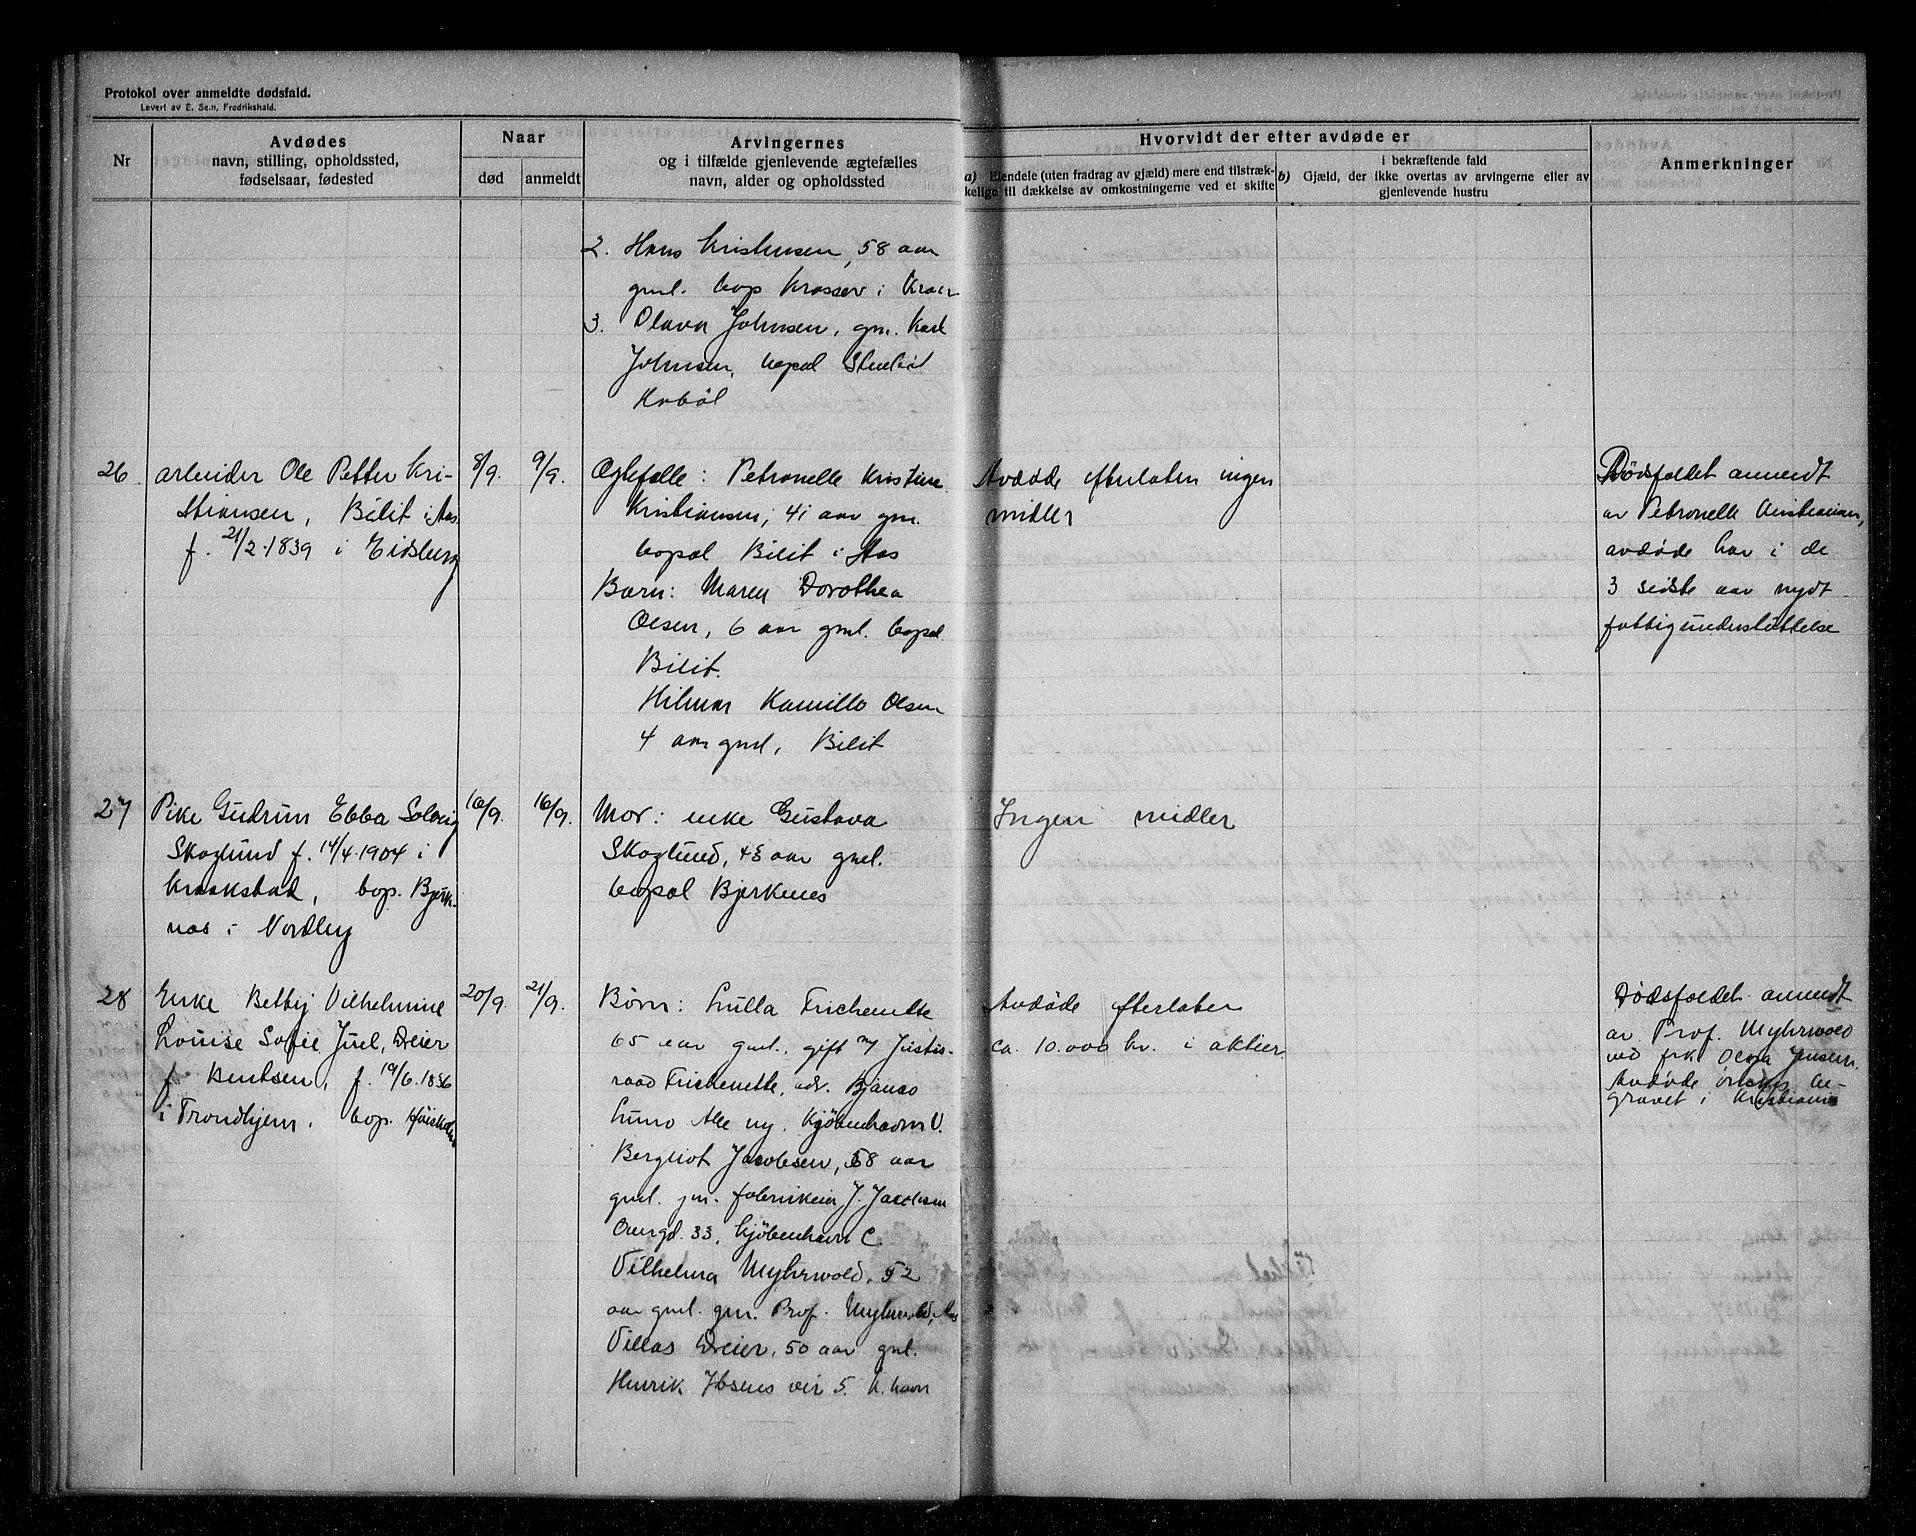 Protokol over anmeldte dødsfald.
Levert av E. Sem, Fredrikshald.
Nr
Avdødes
navn, stilling, opholdssted,
fødselsaar, fødested
Naar
død
anmeldt
Arvingernes
og i tilfælde gjenlevende ægtefælles
navn, alder og opholdssted
Hvorvidt der efter avdøde er
a) Eiendele (uten fradrag av gjæld) mere end tilstræk-
kelige til dækkelse av omkostningerne ved et skifte
i bekræftende fald
b) Gjæld, der ikke overtas av arvingerne eller av
gjenlevende hustru
Anmerkninger
2. Hans Kristensen, 58 aar
gml. bop Krosser i Kraer
3. Olava Johnsen, gm. Karl
Johnsen, bopal
Hobøl
26
arbeider Ole Petter Kri-
stiansen, Bilit i Aas
f. 21/2-1839 i Eidsberg
8/9.
9/9.
Ægtefælle: Petronelle Kristine
Kristiansen, 41 aar gm.
bopal Bilit i Aas
Barn: Maren Dorothea
Olsen, 6 aar gml. bopal
Bilit.
Hilmar Kamillo Olsen
4 aar gml, Bilit
Avdøde efterlater ingen
midler
Dødsfaldet anmeldt
av Petronelle Kristiansen,
avdøde har i de
3 sidste aar nydt
fattigunderstøttelse
27
Pike Gudrun Ebba Solveig
Skoglund f. 14/4-1904 i
Kraakstad, bop. Bjerk-
nas i Nordby
16/9.
16/9.
Mor: enke Gustava
Skoglund, 48 aar gml.
bopal Bjerkenes
Ingen midler
28
Enke Betty Vilhelmine
Louise Sofie Juel, Dreier
f Bentsen, f. 19/6.1836
i Trondhjem. bop. Høiskolen
20/9.
21/9.
Børn: Lulla Trichenette
65 aar gml., gift m/ Justis-
raad Trichenette, adr. Bjanco
Luno Alle ny, Kjøbenhavn V.
Bergliot Jacobsen, 58 aar
gml. gm. fabrikeier J. Jacobsen
33, Kjøbenhavn C.
Vilhelma Myhrwold, 52
aar gml. gm. Prof. Myhrwold, Aas
Villas Dreier, 50 aar gml.
Henrik Ibsens vei 5. K.havn
Avdøde efterlater
ca. 10.000 kr. i aktier
Dødsfaldet anmeldt
av Prof. Myhrwold
ved frk Olga Jensen.
Avdøde ønskes be-
gravet i Kristiania